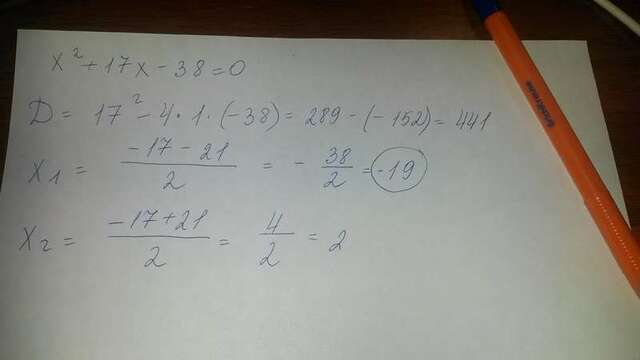 x² + 17x - 38 = 0
D = 17² - 4 · 1 · (-38) = 289 - (-152) = 441
x₁ = (-17 - 21)/2 = - 38/2 = -19
x₂ = (-17 + 21)/2 = 4/2 = 2